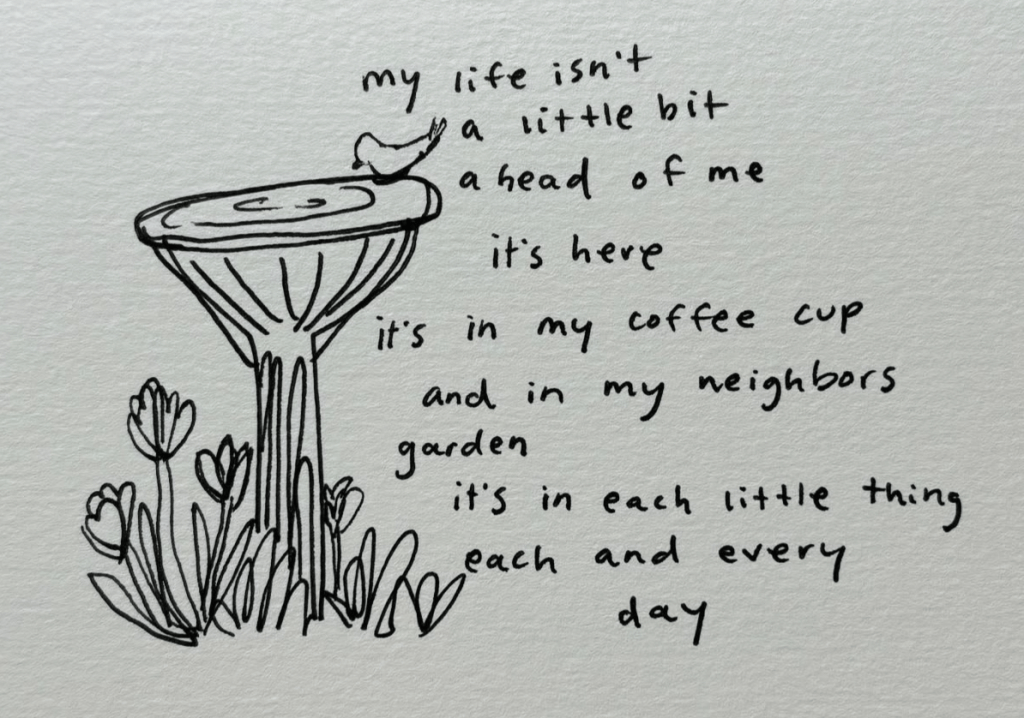 my life isn't
a little bit
ahead of me
it's here
it's in my coffee cup
and in my neighbors
garden
it's in each little thing
each and every
day